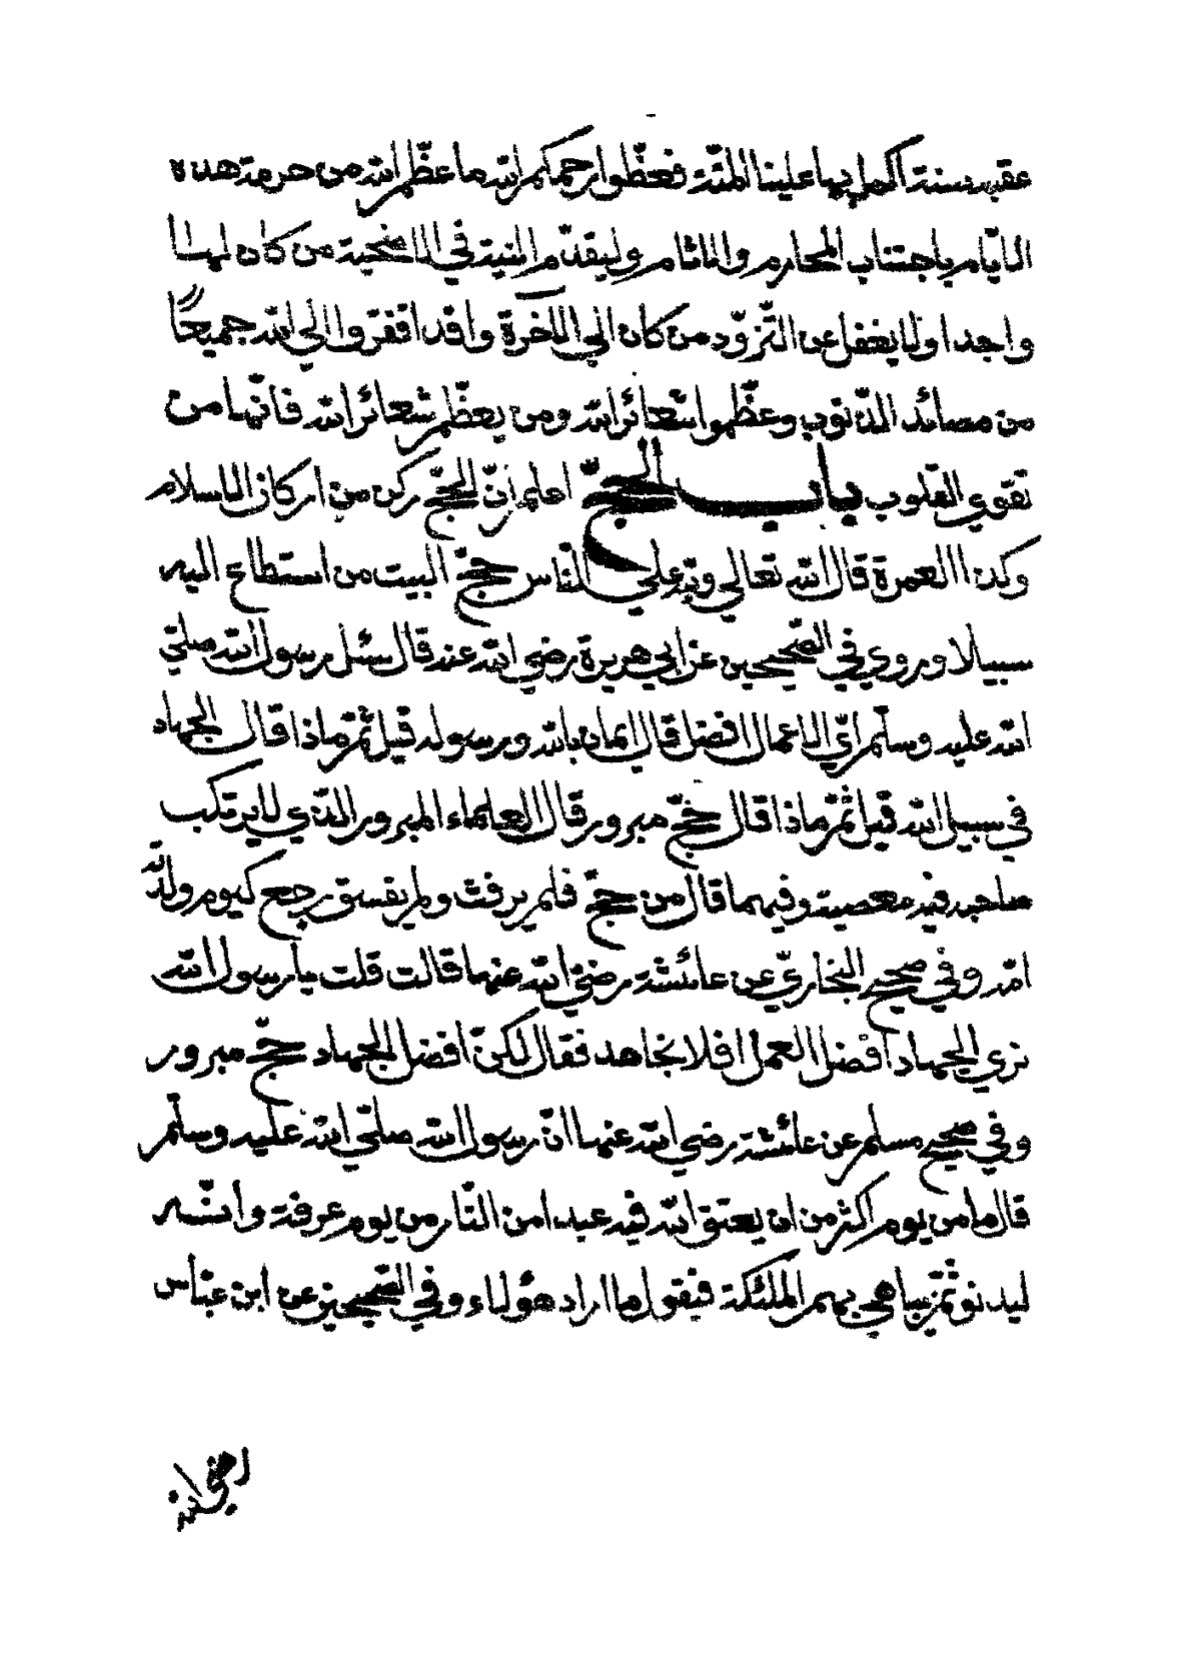 عقيب سنة اكمل بها علينا المنّة فعظّموا رحمكم الله ما عظّم الله من حرمة هذه
الايّام باجتناب المحارم والاثام وليقدّم النية في الاضحية من كان لها
واجدا ولا يغفل عن التّزوّد من كان الي الآخرة وافدا ففرّوا الي الله جميعًا
من مصائد الذّنوب وعظّموا شعائر الله ومن يعظّم شعائر الله فانّها من
تقوي القلوب باب الحجّ اعلم انّ الحجّ ركن من اركان الاسلام
وكذا العمرة قال الله تعالي ولله علي النّاس حجّ البيت من استطاع اليه
سبيلا وروي في الصّحيحين عن ابي هريرة رضي الله عنه قال سئل رسول الله صلّي
الله عليه وسلّم ايّ الاعمال افضل قال ايمان بالله ورسوله قيل ثمّ ماذا قال الجهاد
في سبيل الله قيل ثمّ ماذا قال حجّ مبرور قال العلماء المبرور الّذي لا يرتكب
صاحبه فيه معصية وفيهما قال من حجّ فلم يرفث ولم يفسق رجع كيوم ولدته
امّه وفي صحيح البخاريّ عن عائشة رضي الله عنها قالت قلت يا رسول الله
نري الجهاد افضل العمل افلا نجاهد فقال لكنّ افضل الجهاد حجّ مبرور
وفي صحيح مسلم عن عائشة رضي الله عنها انّ رسول الله صلّي الله عليه وسلّم
قال ما من يوم اكثر من ان يعتق الله فيه عبدا من النّار من يوم عرفة وانّه
ليدنو ثمّ يباهي بهم الملئكة فيقول ما اراد هؤلاء وفي الصّحيحين عن ابن عبّاس
رضي الله